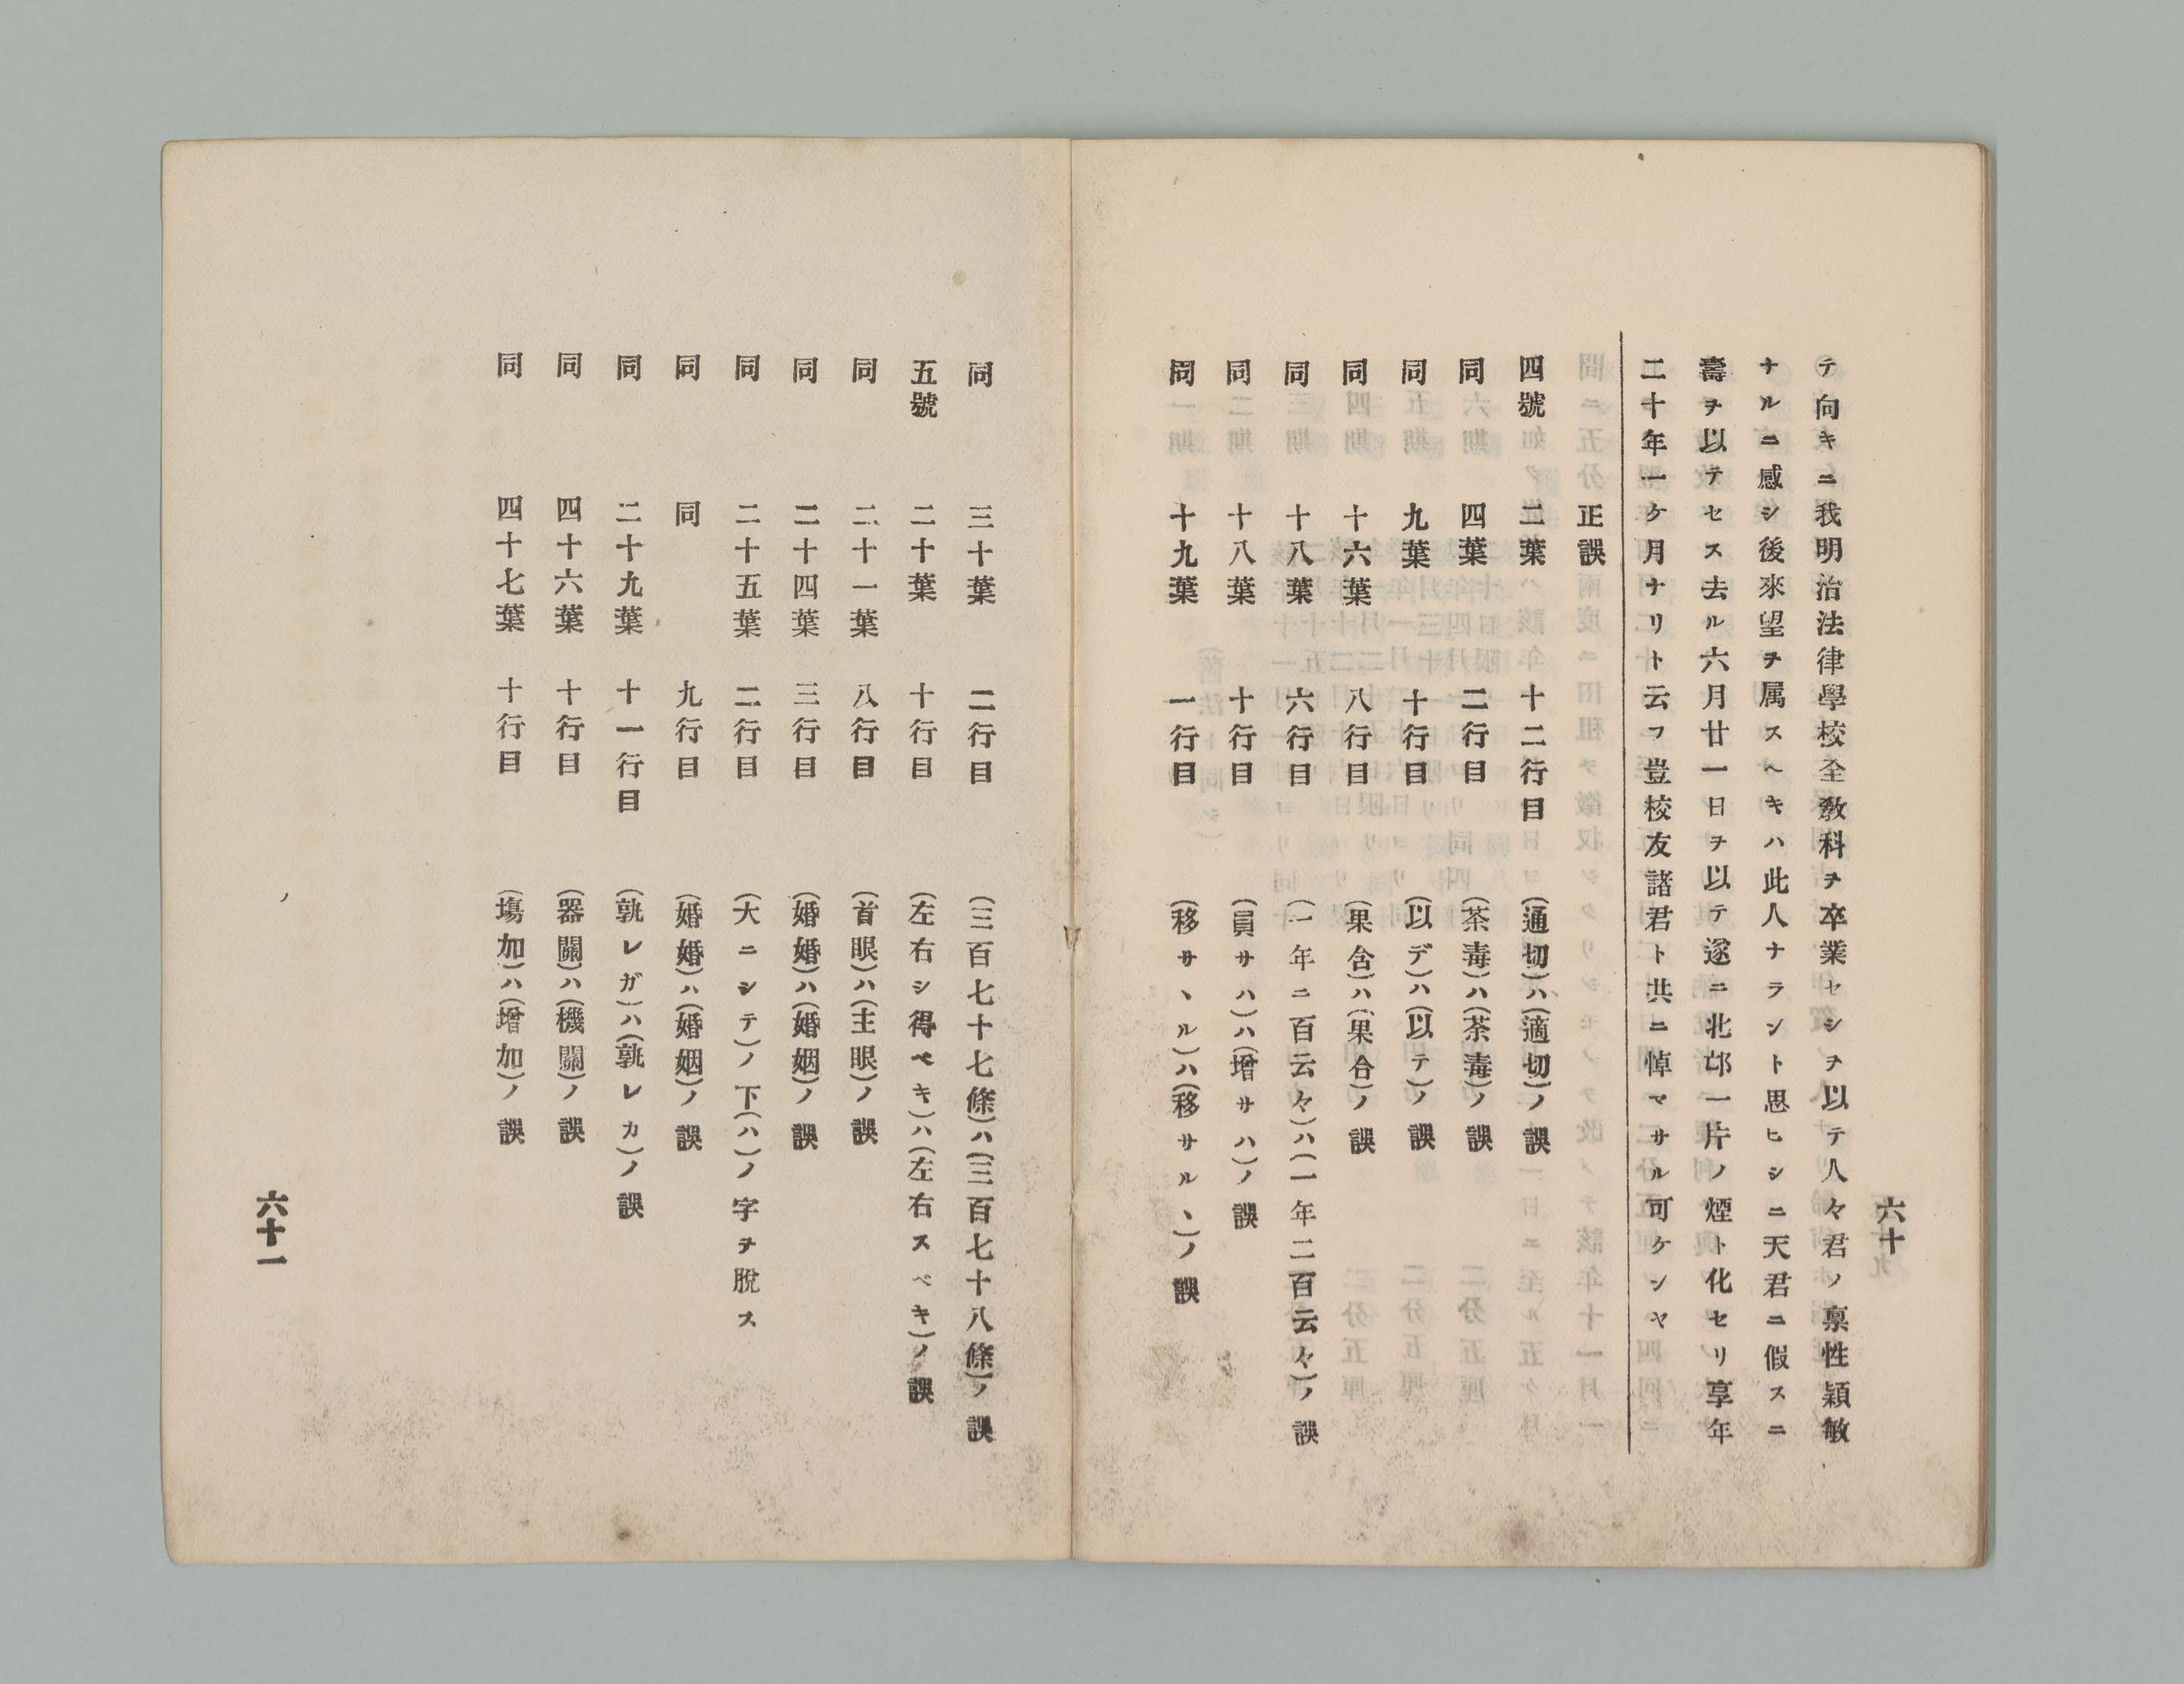 六十
テ向キニ我明治法律學校全敎科ヲ卒業セシヲ以テ人々君ノ禀性穎敏
ナルニ感シ後來望ヲ属スヘキハ此人ナラント思ヒシニ天君ニ假スニ
壽ヲ以テセス去ル六月廿一日ヲ以テ遂ニ北邙一片ノ煙ト化セリ享年
二十年一ケ月ナリト云フ豈校友諸君ト共ニ悼マサル可ケンヤ
正誤
四號 二葉 十二行目 (通切)ハ(適切)ノ誤
同 四葉 二行目 (茶毒)ハ(荼毒)ノ誤
同 九葉 十行目 (以デ)ハ(以テ)ノ誤
同 十六葉 八行目 (果含)ハ(果合)ノ誤
同 十八葉 六行目 (一年ニ百云々)ハ(一年二百云々)ノ誤
同 十八葉 十行目 (員サハ)ハ(增サハ)ノ誤
同 十九葉 一行目 (移サヽル)ハ(移サルヽ)ノ誤
同 三十葉 二行目 (三百七十七條)ハ(三百七十八條)ノ誤
五號 二十葉 十行目 (左右シ得ベキ)ハ(左右スベキ)ノ誤
同 二十一葉 八行目 (首眼)ハ(主眼)ノ誤
同 二十四葉 三行目 (婚婚)ハ(婚姻)ノ誤
同 二十五葉 二行目 (大ニシテ)ノ下(ハ)ノ字ヲ脫ス
同 同 九行目 (婚婚)ハ(婚姻)ノ誤
同 二十九葉 十一行目 (孰レガ)ハ(孰レカ)ノ誤
同 四十六葉 十行目 (器關)ハ(機關)ノ誤
同 四十七葉 十行目 (塲加)ハ(增加)ノ誤
六十一